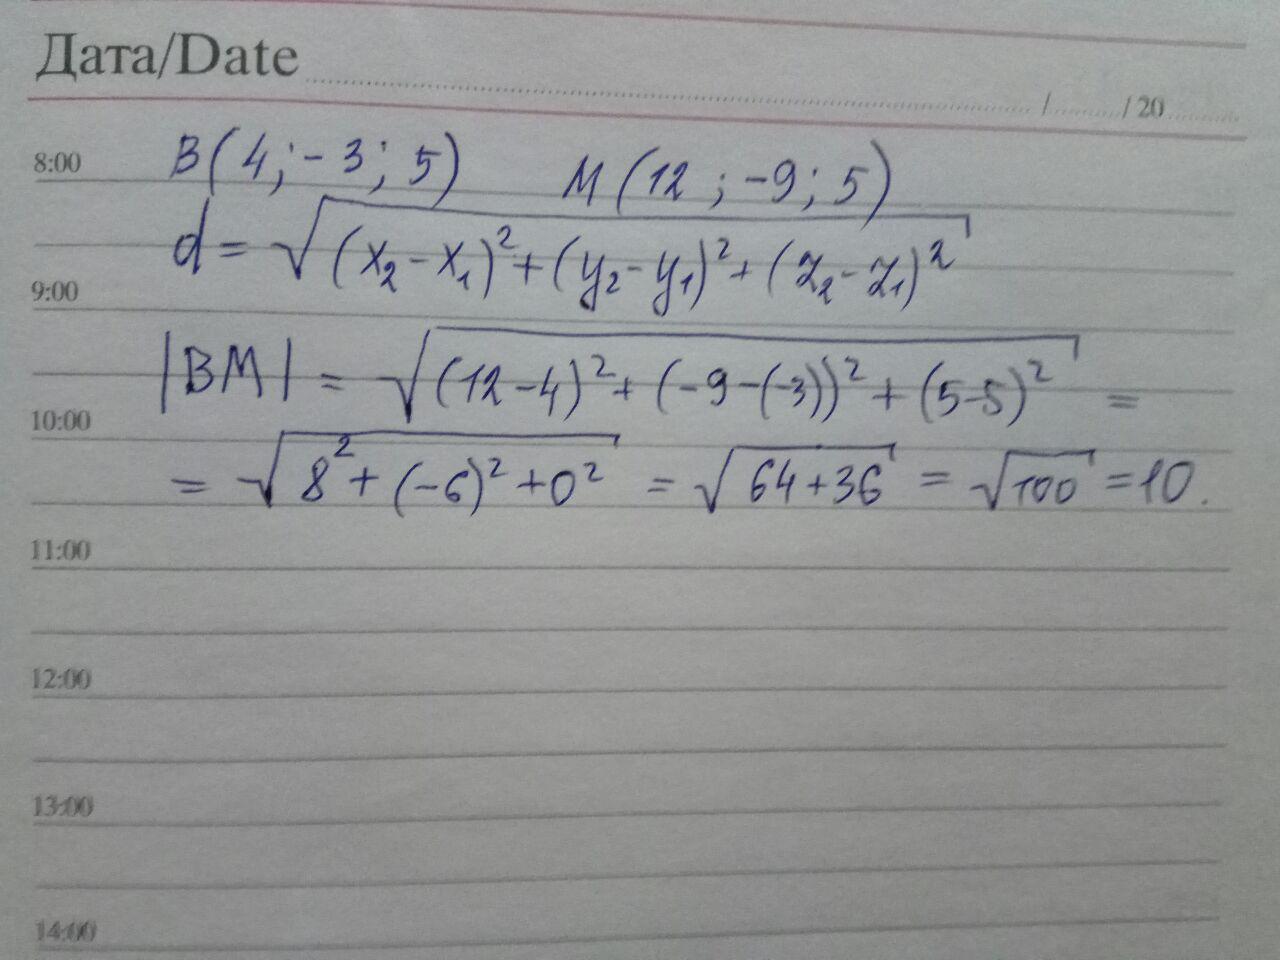 Дата/Date ........ / ........ / 20 ........
8:00 B(4; -3; 5) M(12; -9; 5)
d = √((x₂ - x₁)² + (y₂ - y₁)² + (z₂ - z₁)²)
9:00
|BM| = √((12 - 4)² + (-9 - (-3))² + (5 - 5)²) =
10:00
= √(8² + (-6)² + 0²) = √(64 + 36) = √100 = 10.
11:00
12:00
13:00
14:00